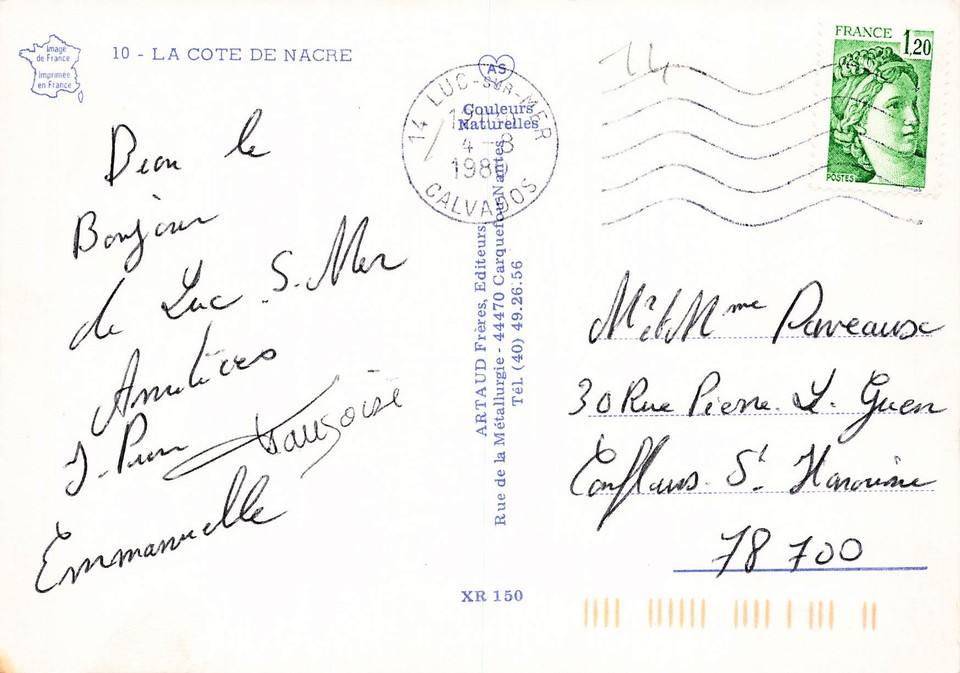 Image
de France
Imprimée
en France
10 - LA COTE DE NACRE
Bien le
Bonjour
de Luc S. Mer
Amitiées
J. Pierre Françoise
Emmanuelle
AS
Couleurs
Naturelles
14 LUC-SUR-MER
4 - 8
1980
CALVADOS
ARTAUD Frères, Editeurs
Rue de la Métallurgie - 44470 Carquefou-Nantes
Tél. (40) 49.26.56
XR 150
14
FRANCE 1,20
POSTES
Mr et Mme Paveaux
30 Rue Pierre L. Guen
Conflans St Honorine
78 700